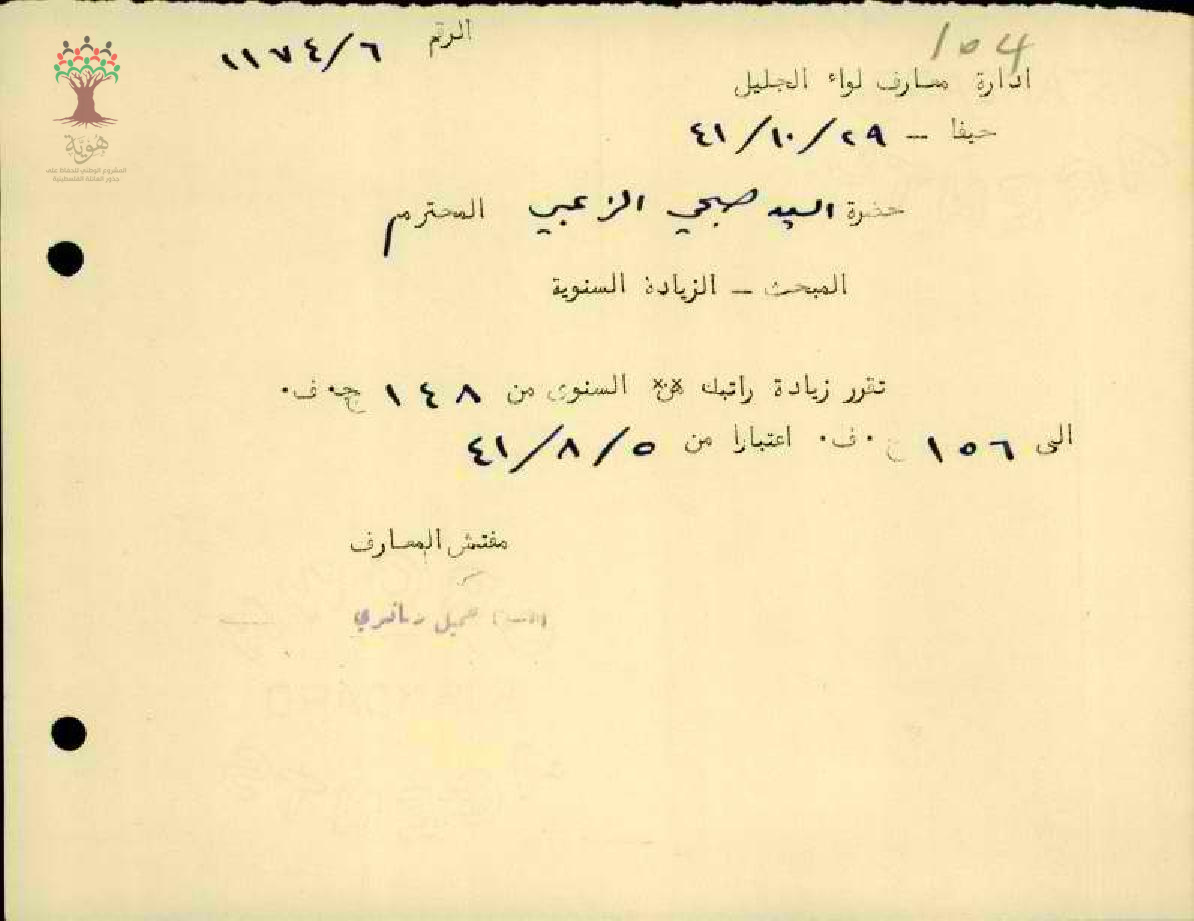 104
الرقم ١١٧٤/٦
ادارة معارف لواء الجليل
حيفا – ٤١/١٠/٢٩
حضرة السيد صبحي الزعبي المحترم
المبحث – الزيادة السنوية
تقرر زيادة راتبك السنوى من ١٤٨ ج. ف.
الى ١٥٦ ج. ف. اعتبارا من ٤١/٨/٥
مفتش المعارف
جميل
هُوِيَّة
المشروع الوطني للحفاظ على
جذور العائلة الفلسطينية